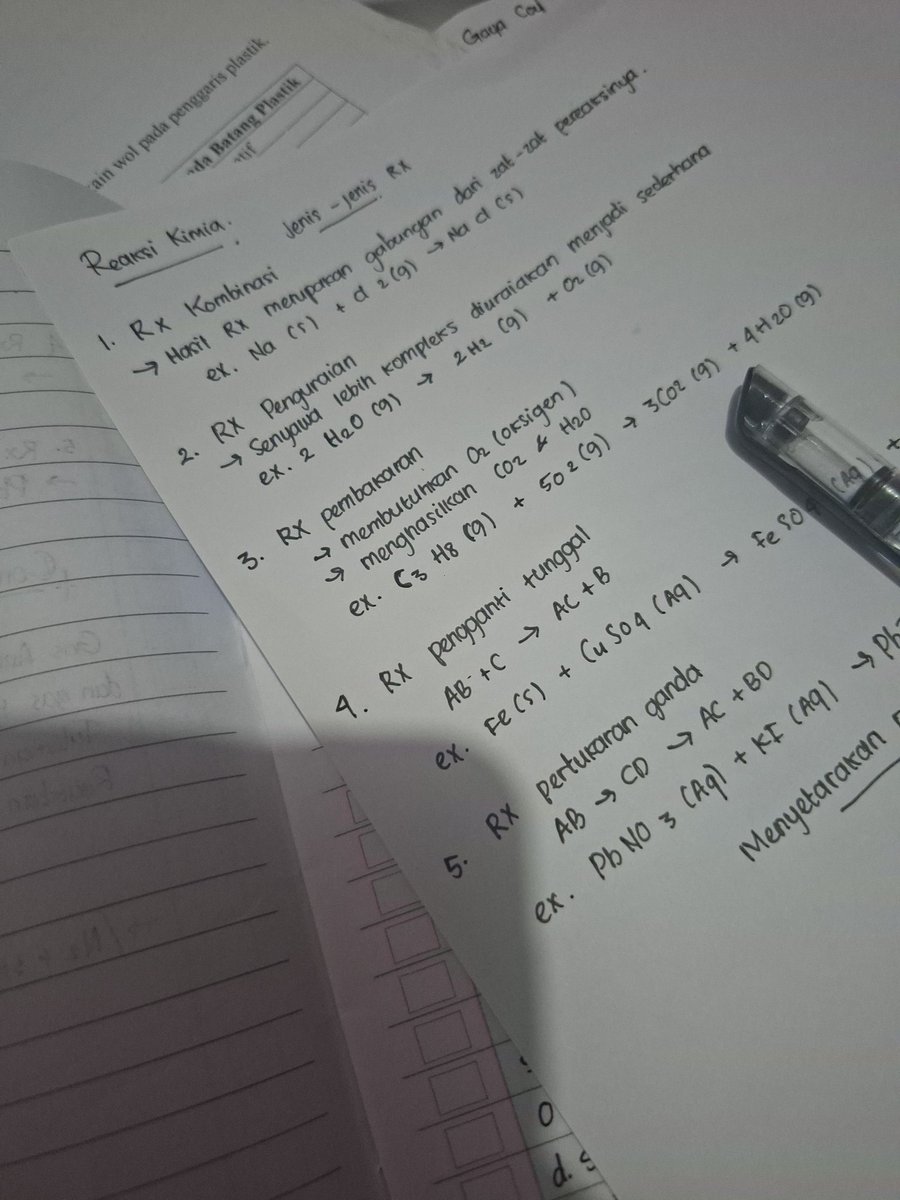 Gaya Coul
ain wol pada penggaris plastik.
ada Batang Plastik
atif
Reaksi Kimia.
Jenis - jenis RX
1. RX Kombinasi
→ Hasil RX merupakan gabungan dari zat-zat pereaksinya.
ex. Na (s) + Cl 2 (g) → Na Cl (s)
2. RX Penguraian
→ Senyawa lebih kompleks diuraiakan menjadi sederhana
ex. 2 H2O (g) → 2H2 (g) + O2 (g)
3. RX pembakaran
→ membutuhkan O2 (oksigen)
→ menghasilkan CO2 & H2O
ex. C3 H8 (g) + 5O2 (g) → 3CO2 (g) + 4H2O (g)
4. RX pengganti tunggal
AB + C → AC + B
ex. Fe (s) + Cu SO4 (Aq) → Fe SO4 (Aq) +
5. RX pertukaran ganda
AB → CD → AC + BD
ex. Pb NO 3 (Aq) + KI (Aq) → Pb
Menyetarakan
O
d. S